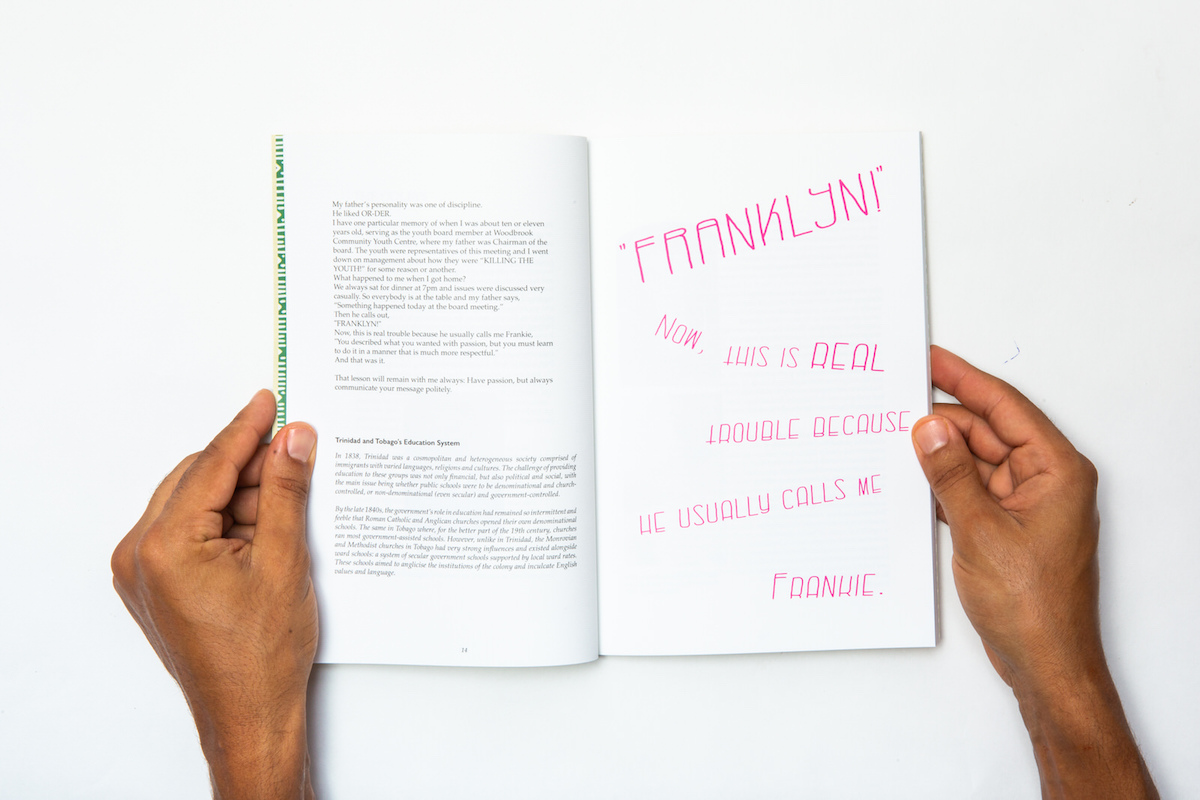 My father's personality was one of discipline.
He liked OR-DER.
I have one particular memory of when I was about ten or eleven
years old, serving as the youth board member at Woodbrook
Community Youth Centre, where my father was Chairman of the
board. The youth were representatives of this meeting and I went
down on management about how they were "KILLING THE
YOUTH!" for some reason or another.
What happened to me when I got home?
We always sat for dinner at 7pm and issues were discussed very
casually. So everybody is at the table and my father says,
"Something happened today at the board meeting."
Then he calls out,
"FRANKLYN!"
Now, this is real trouble because he usually calls me Frankie,
"You described what you wanted with passion, but you must learn
to do it in a manner that is much more respectful."
And that was it.
That lesson will remain with me always: Have passion, but always
communicate your message politely.
Trinidad and Tobago's Education System
In 1838, Trinidad was a cosmopolitan and heterogeneous society comprised of
immigrants with varied languages, religions and cultures. The challenge of providing
education to these groups was not only financial, but also political and social, with
the main issue being whether public schools were to be denominational and church-
controlled, or non-denominational (even secular) and government-controlled.
By the late 1840s, the government's role in education had remained so intermittent and
feeble that Roman Catholic and Anglican churches opened their own denominational
schools. The same in Tobago where, for the better part of the 19th century, churches
ran most government-assisted schools. However, unlike in Trinidad, the Monrovian
and Methodist churches in Tobago had very strong influences and existed alongside
ward schools: a system of secular government schools supported by local ward rates.
These schools aimed to anglicise the institutions of the colony and inculcate English
values and language.
14
"FRANKLYN!"
NOW,
THIS IS REAL
TROUBLE BECAUSE
HE USUALLY CALLS ME
FRANKIE.